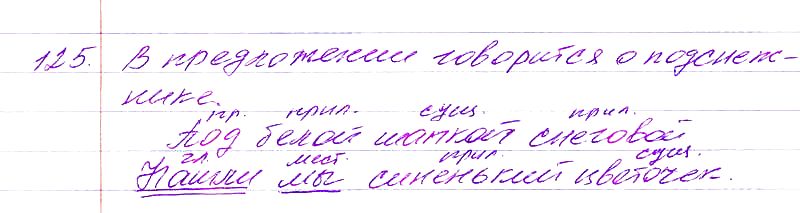 125. В предложении говорится о подснеж-
нике.
пр. прил. сущ. прил.
Под белой шапкой снеговой
гл. мест. прил. сущ.
Нашли мы синенький цветочек.